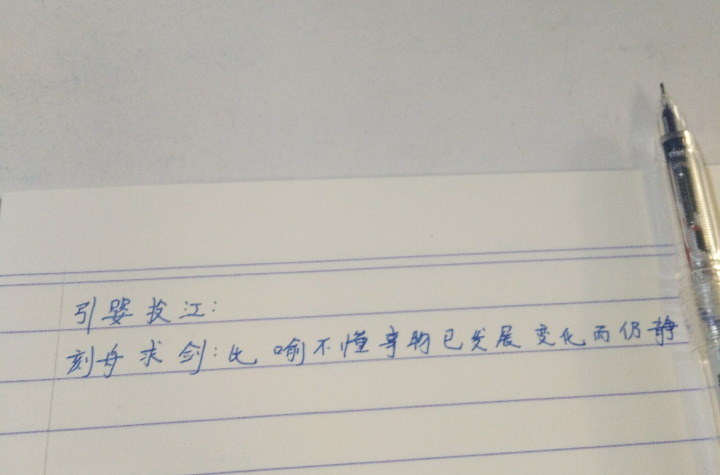 引婴投江:
刻舟求剑:比喻不懂事物已发展变化而仍静